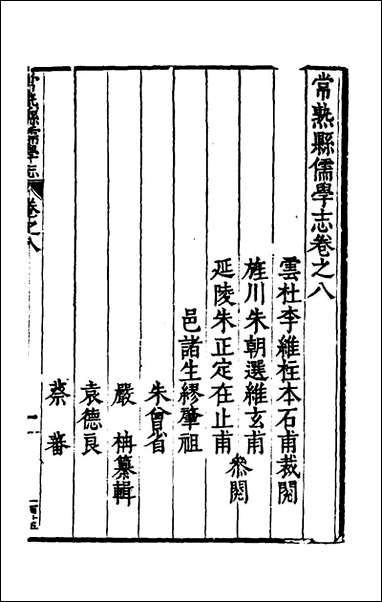 常熟縣儒學志卷之八
雲杜李維柱本石甫裁閱
旌川朱朝選維玄甫
延陵朱正定在止甫
叅閱
邑諸生繆肇祖
朱曾省
嚴 柟纂輯
袁德良
蔡 蕃
常熟縣儒學志
卷之八
一